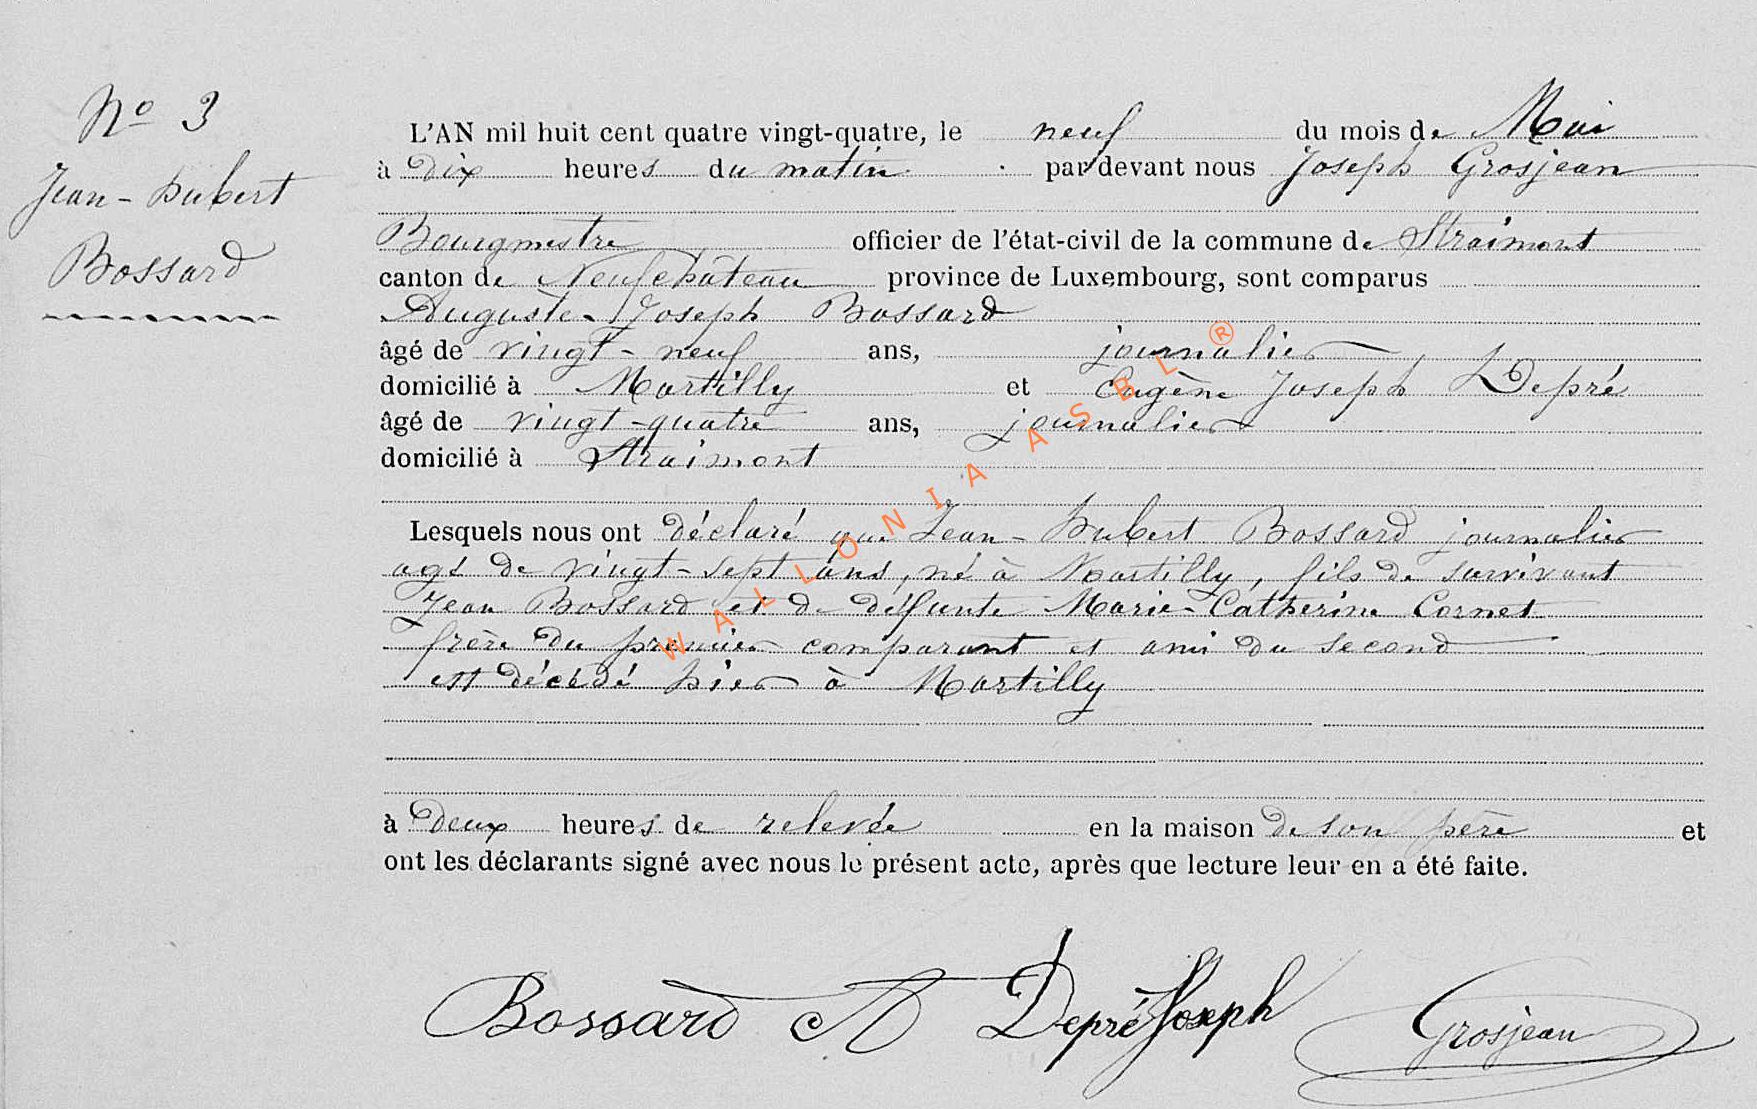 No 3
Jean-Hubert
Bossard
L'AN mil huit cent quatre vingt-quatre, le neuf du mois de Mai
à Dix heures du matin par devant nous Joseph Grosjean
Bourgmestre officier de l'état-civil de la commune de Straimont
canton de Neufchâteau province de Luxembourg, sont comparus
Auguste-Joseph Bossard
âgé de vingt-neuf ans, journalier,
domicilié à Martilly et Eugène Joseph Depré
âgé de vingt-quatre ans, journalier
domicilié à Straimont
Lesquels nous ont déclaré que Jean-Hubert Bossard journalier
agé de vingt-sept ans, né à Martilly, fils de survivant
Jean Bossard et de défunte Marie-Catherine Cornet
frère du premier comparant et ami du second
est décédé hier à Martilly
à deux heures de relevée en la maison de son père et
ont les déclarants signé avec nous le présent acte, après que lecture leur en a été faite.
Bossard A Depré Joseph Grosjean
WALLONIA ASBL ®